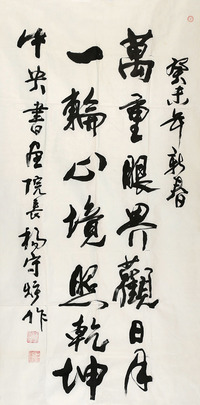 癸未年新春
萬重眼界觀日月
一輪心境照乾坤
中央書画院長楊守
作